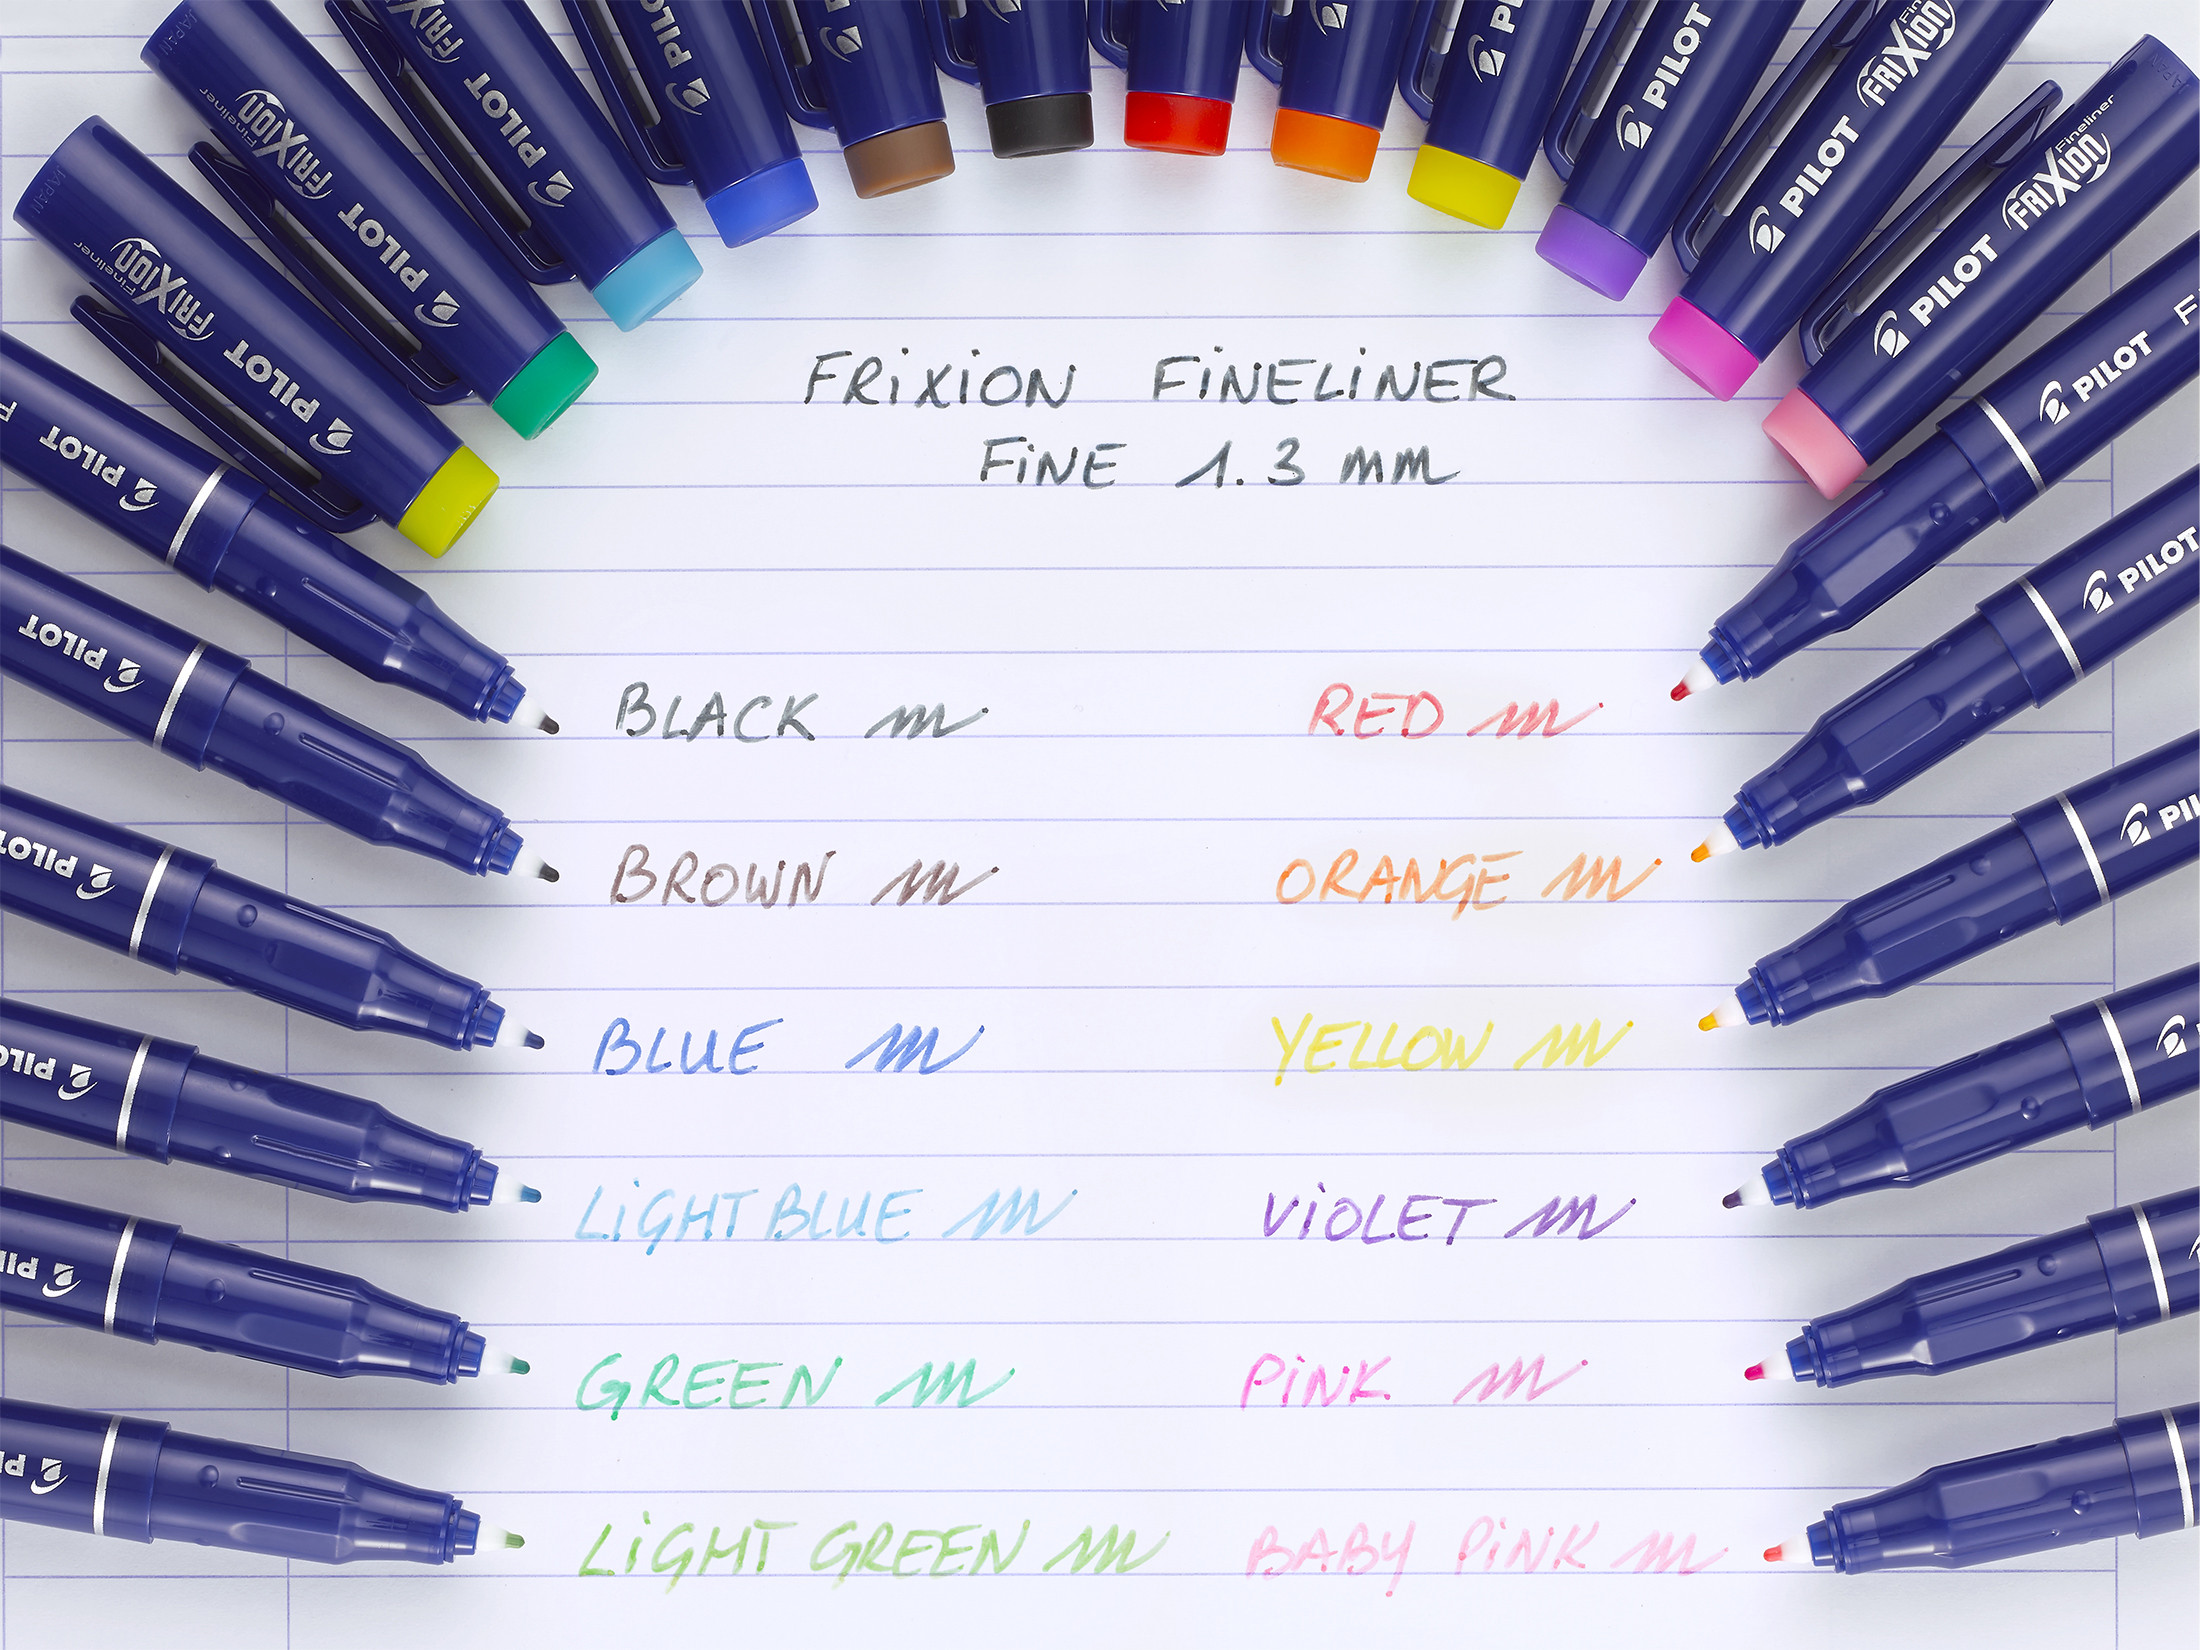 FRiXiON FiNELiNER
FiNE 1.3 mm
BLACK
RED
BROWN
ORANGE
BLUE
YELLOW
LiGHT BLUE
ViOLET
GREEN
PiNK
LiGHT GREEN
BABY PiNK
JAPAN
PILOT FRIXION Fineliner
PILOT FRIXION Fineliner
PILOT FRIXION
PILOT
PILOT
PILOT FRIXION Fineliner
PILOT FRIXION Fineliner
JAPAN
PILOT
PILOT
PILOT
PILOT
PILOT
PILOT